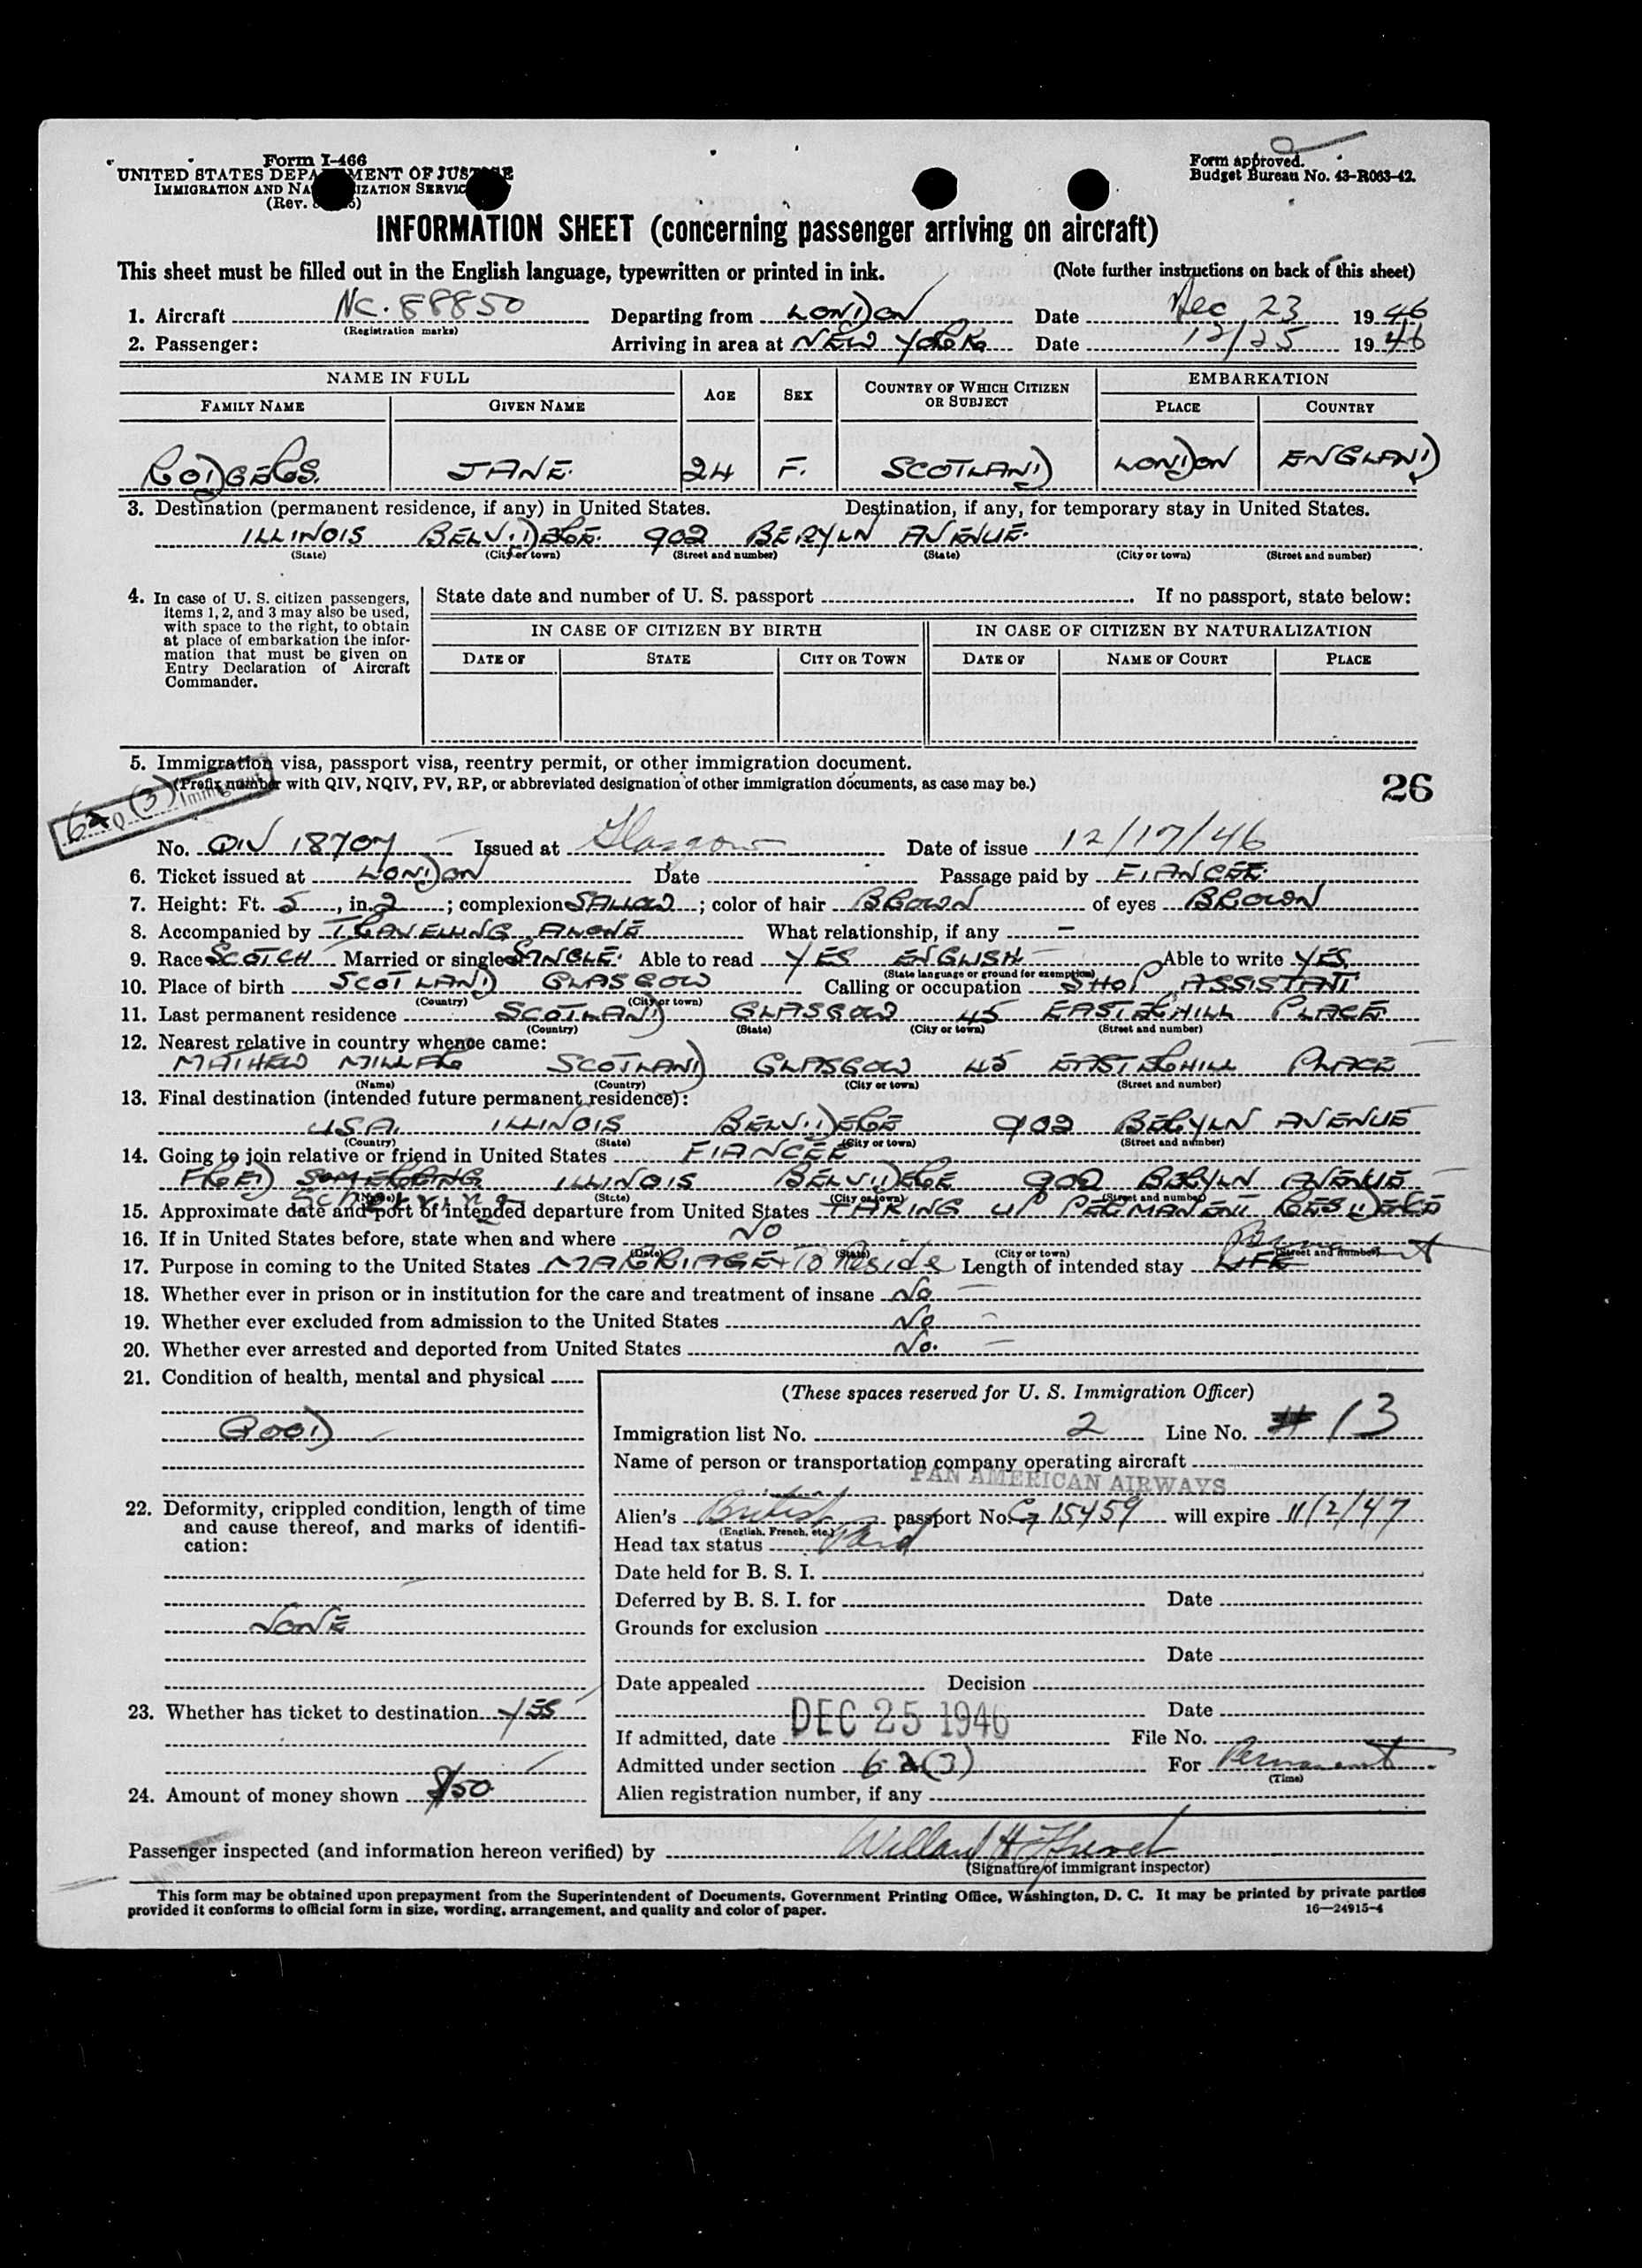 Form I-466
UNITED STATES DEPA MENT OF JUST E
IMMIGRATION AND NA IZATION SERVIC
(Rev.
Form approved.
Budget Bureau No. 43-R063-42.
INFORMATION SHEET (concerning passenger arriving on aircraft)
This sheet must be filled out in the English language, typewritten or printed in ink. (Note further instructions on back of this sheet)
1. Aircraft NC. 88850 Departing from LONDON Date Dec 23 1946
(Registration marks)
2. Passenger: Arriving in area at NEW YORK Date 12/25 1946
NAME IN FULL AGE SEX COUNTRY OF WHICH CITIZEN OR SUBJECT EMBARKATION
FAMILY NAME GIVEN NAME PLACE COUNTRY
RODGERS. JANE. 24 F. SCOTLAND LONDON ENGLAND
3. Destination (permanent residence, if any) in United States. Destination, if any, for temporary stay in United States.
ILLINOIS BELVIDERE. 902 BERYLN AVENUE.
(State) (City or town) (Street and number) (State) (City or town) (Street and number)
4. In case of U. S. citizen passengers, items 1, 2, and 3 may also be used, with space to the right, to obtain at place of embarkation the information that must be given on Entry Declaration of Aircraft Commander.
State date and number of U. S. passport If no passport, state below:
IN CASE OF CITIZEN BY BIRTH IN CASE OF CITIZEN BY NATURALIZATION
DATE OF STATE CITY OR TOWN DATE OF NAME OF COURT PLACE
5. Immigration visa, passport visa, reentry permit, or other immigration document.
(Prefix number with QIV, NQIV, PV, RP, or abbreviated designation of other immigration documents, as case may be.) 26
6a (3) Q Immigrant
No. QIV 18707 Issued at Glasgow Date of issue 12/17/46
6. Ticket issued at LONDON Date Passage paid by FIANCÉE.
7. Height: Ft. 5, in. 2; complexion SALLOW; color of hair BROWN of eyes BROWN
8. Accompanied by TRAVELLING ALONE What relationship, if any –
9. Race SCOTCH Married or single SINGLE. Able to read YES ENGLISH Able to write YES
(State language or ground for exemption)
10. Place of birth SCOTLAND GLASGOW Calling or occupation SHOP ASSISTANT
(Country) (City or town)
11. Last permanent residence SCOTLAND GLASGOW 45 EASTERHILL PLACE
(Country) (State) (City or town) (Street and number)
12. Nearest relative in country whence came:
MATHEW MILLAR SCOTLAND GLASGOW 45 EASTERHILL PLACE
(Name) (Country) (City or town) (Street and number)
13. Final destination (intended future permanent residence):
USA. ILLINOIS BELVIDERE 902 BERYLN AVENUE
(Country) (State) (City or town) (Street and number)
14. Going to join relative or friend in United States FIANCÉE
FRED ILLINOIS BELVIDERE 902 BERYLN AVENUE
(Name) (State) (City or town) (Street and number)
15. Approximate date and port of intended departure from United States TAKING UP PERMANENT RESIDENCE
16. If in United States before, state when and where NO
(Date) (State) (City or town) (Street and number)
17. Purpose in coming to the United States MARRIAGE + To Reside Length of intended stay LIFE Permanent
18. Whether ever in prison or in institution for the care and treatment of insane No
19. Whether ever excluded from admission to the United States No
20. Whether ever arrested and deported from United States No.
21. Condition of health, mental and physical
GOOD
22. Deformity, crippled condition, length of time and cause thereof, and marks of identification:
NONE
23. Whether has ticket to destination YES
24. Amount of money shown $50.
(These spaces reserved for U. S. Immigration Officer)
Immigration list No. 2 Line No. 13
Name of person or transportation company operating aircraft
PAN AMERICAN AIRWAYS
Alien's British passport No. G 15459 will expire 11/2/47
(English, French, etc.)
Head tax status Paid
Date held for B. S. I.
Deferred by B. S. I. for Date
Grounds for exclusion
Date
Date appealed Decision
Date
If admitted, date DEC 25 1946 File No.
Admitted under section 6a(3) For Permanent
(Time)
Alien registration number, if any
Passenger inspected (and information hereon verified) by Willard H
(Signature of immigrant inspector)
This form may be obtained upon prepayment from the Superintendent of Documents, Government Printing Office, Washington, D. C. It may be printed by private parties
provided it conforms to official form in size, wording, arrangement, and quality and color of paper. 16—24915-4